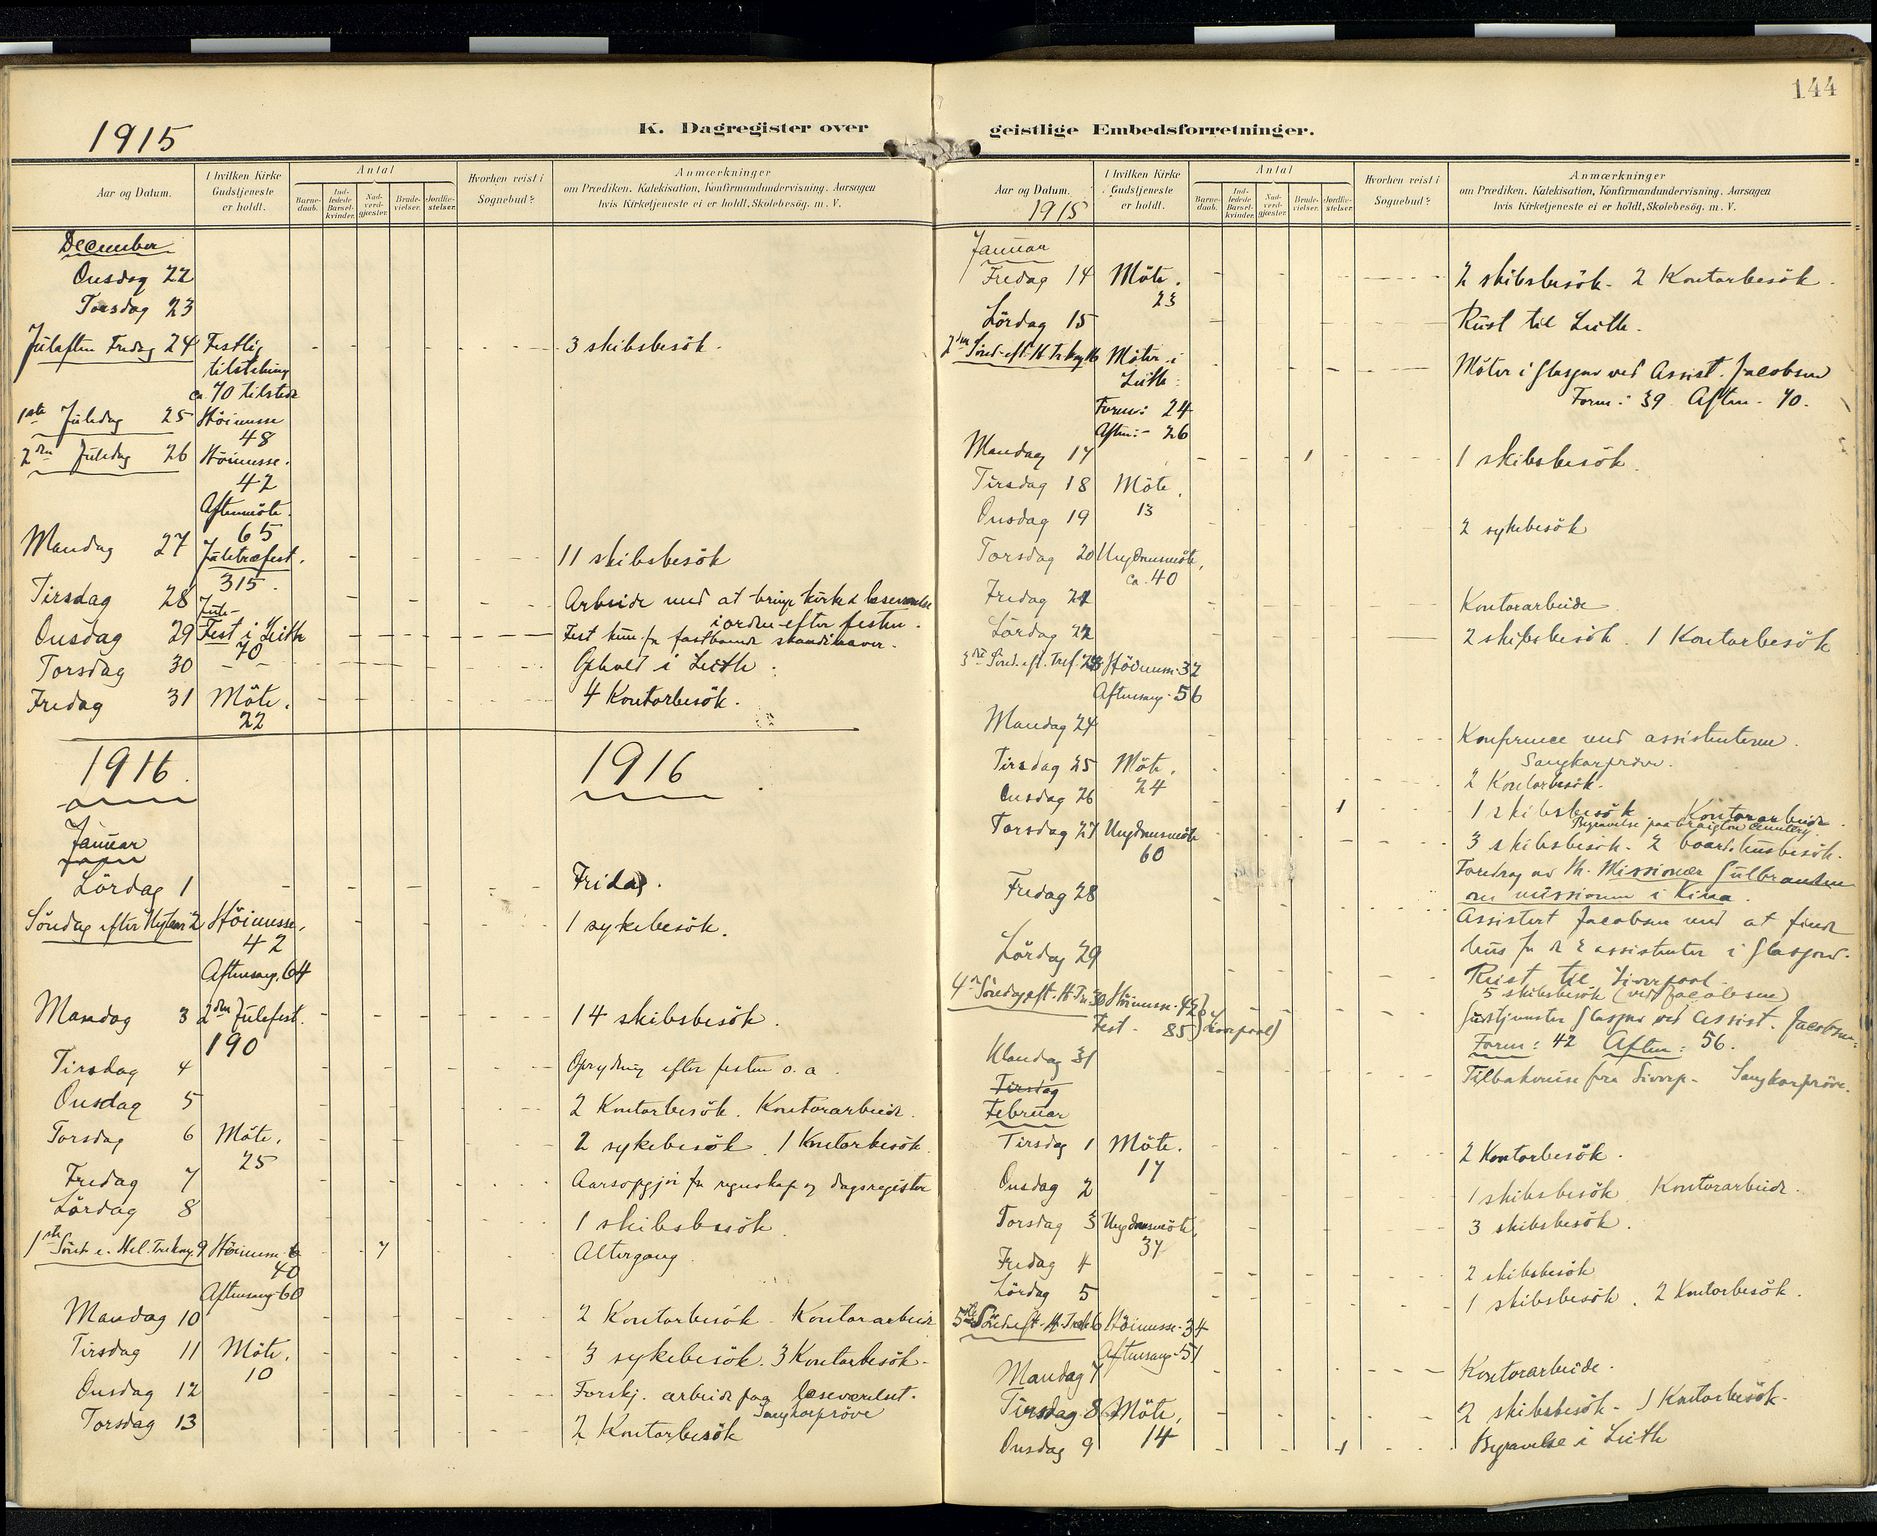 144
1915
K. Dagregister over
Aar og Datum.
I hvilken Kirke Gudstjeneste er holdt.
Antal
Barnedaab.
Indledede Barselkvinder.
Nadverdgjester.
Brudevielser.
Jordfæstelser.
Hvorhen reist i Sognebud?
Anmærkninger
om Prædiken, Katekisation, Konfirmandundervisning, Aarsagen
hvis Kirketjeneste ei er holdt, Skolebesøg. m. V.
December
Onsdag 22
Torsdag 23
Juleaften Fredag 24 Festlig - - - - - - 3 skibsbesök.
tilstelning
ca. 70 tilstede
1ste Juledag 25 Höimesse
48
2den Juledag 26 Höimesse.
42
Aftenmöte.
65
Mandag 27 Juletræfest. - - - - - 11 skibsbesök
315.
Tirsdag 28 - - - - Arbeide med at bringe kirke & læseværelse
i orden efter festen.
Jule-
Onsdag 29 Fest i Leith - - - - Fest kun for fastboende skandinaver.
70
Torsdag 30 - - - - Ophold i Leith.
Fredag 31 Möte. - - - - 4 Kontorbesök.
22
1916. 1916
Januar
Lördag 1 - - - - Fridag.
Söndag efter Nytaar 2 Höimesse. 1 sykebesök.
42
Aftensang. 64
Mandag 3 2den Julefest. - - - - 14 skibsbesök.
190
Tirsdag 4 - - - - Oprydning efter festen o. a.
Onsdag 5 - - - - 2 Kontorbesök. Kontorarbeide.
Torsdag 6 Möte. - - - - 2 sykebesök. 1 Kontorbesök.
25
Fredag 7 - - - - Aarsopgjör for regnskap og dagsregister
Lördag 8 - - - - 1 skibsbesök.
1ste Sönd. e. Hel. Trekong. 9 Höimesse - - 7 - - Altergang.
40
Aftensang 60
Mandag 10 - - - - 2 Kontorbesök - Kontorarbeide
Tirsdag 11 Möte. - - - - 3 sykebesök. 3 Kontorbesök -
10
Onsdag 12 - - - - Forskj. arbeide paa læseværelset.
Sangkorpröve
Torsdag 13 - - - - 2 Kontorbesök
geistlige Embedsforretninger.
Aar og Datum.
1915
I hvilken Kirke Gudstjeneste er holdt.
Antal
Barnedaab.
Indledede Barselkvinder.
Nadverdgjester.
Brudevielser.
Jordfæstelser.
Hvorhen reist i Sognebud?
Anmærkninger
om Prædiken, Katekisation, Konfirmandundervisning, Aarsagen
hvis Kirketjeneste ei er holdt, Skolebesøg. m. V.
Januar
Fredag 14 Möte. - - - - 2 skibsbesök - 2 Kontorbesök.
23
Lördag 15 - - - - Reist til Leith.
2den Sönd. eft. H. Trekong. 16 Möter i - - - - Möter i Glasgow ved Assist. Jacobsen
Leith: Form: 39. Aften. 70.
Form: 24
Aften: - 26
Mandag 17 - - - 1 - 1 skibsbesök.
Tirsdag 18 Möte.
13
Onsdag 19 - - - - 2 sykebesök
Torsdag 20 Ungdomsmöte,
ca. 40
Fredag 21 - - - - Kontorarbeide
Lördag 22 - - - - 2 skibsbesök. 1 Kontorbesök
3die Sönd. eft. Tref. 23 Höimesse. 32
Aftensang - 56
Mandag 24 - - - - Konference med assistenterne.
Sangkorpröve.
Tirsdag 25 Möte. - - - - 2 Kontorbesök.
24
Onsdag 26 - - - - 1 1 skibsbesök. Kontorarbeide.
Begravelse paa Craigton Cemetery.
Torsdag 27 Ungdomsmöte - - - - 3 skibsbesök - 2 boardhusbesök.
60
Foredrag av Hr. Missionær Gulbrandsen
om missionen i Kina.
Fredag 28 - - - - Assistert Jacobsen med at finde
hus for de 2 assistenter i Glasgow.
Lördag 29 - - - - Reist til Liverpool.
5 skibsbesök (ved Jacobsen)
4de Söndag eft. H. Tr. 30 Höimesse - 42 - - - - Gudstjenester Glasgow ved Assist. Jacobsen:
Fest - 85 (Liverpool) Form: 42 Aften: 56.
Mandag 31 - - - - Tilbakereise fra Liverp. - Sangkorpröve.
Tirsdag
Februar
Tirsdag 1 Möte. - - - - 2 Kontorbesök.
17
Onsdag 2 - - - - 1 skibsbesök. Kontorarbeide.
Torsdag 3 Ungdomsmöte, - - - - 3 skibsbesök.
37
Fredag 4 - - - - 2 skibsbesök
Lördag 5 - - - - 1 skibsbesök. 2 Kontorbesök.
5te Sönd. eft. H. Trek. 6 Höimesse - 34
Aftensang - 51
Mandag 7 - - - - Kontorarbeide.
Tirsdag 8 Möte. - - - - 2 skibsbesök - 1 Kontorbesök.
14
Onsdag 9 - - - - 1 Begravelse i Leith